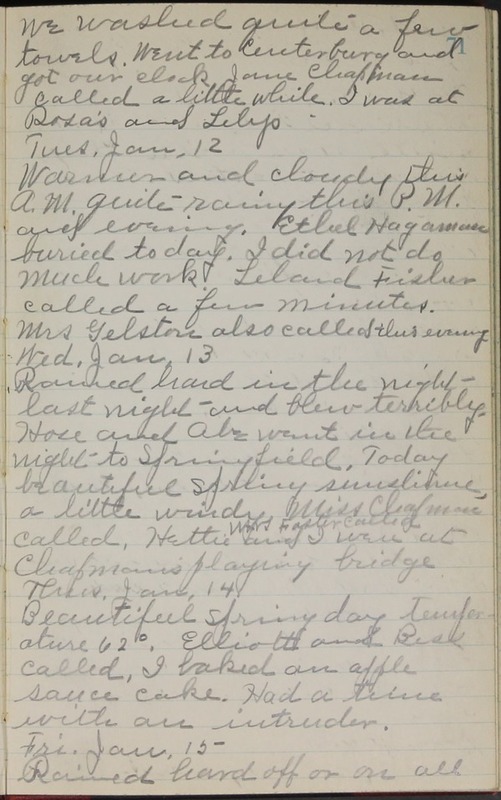 We washed quite a few
71
towels. Went to Centerburg and
got our clock Jane Chapman
called a little while. I was at
Rosa's and Lelys
Tues, Jan, 12
Warmer and cloudy this
A.M. quite rainy this P.M.
and evening. Ethel Hagaman
buried today. I did not do
much work. Leland Fisher
called a few minutes.
Mrs Gelston also called this evening
Wed, Jan, 13
Rained hard in the night
last night and blew terribly.
Hose and Abe went in the
night to Springfield, Today
beautiful Spring sunshine,
a little windy, Miss Chapman
Mrs Foster called
called, Hettie and I were at
Chapmans playing bridge
Thurs, Jan, 14
Beautiful Spring day temper-
ature 62°. Elliott and Bess
called, I baked an apple
sauce cake. Had a time
with an intruder.
Fri. Jan, 15
Rained hard off or on all